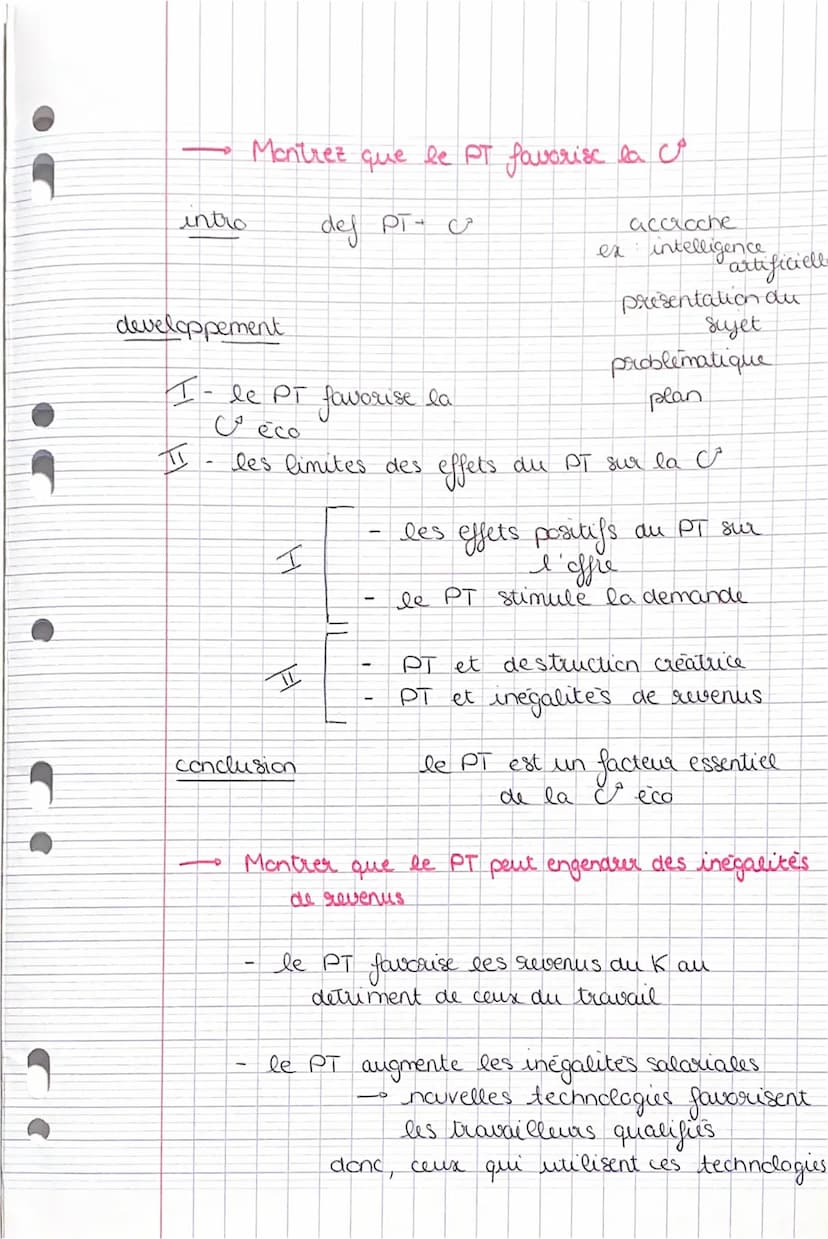 → Montrez que le PT favorise la C°
intro def PT + C° accroche
ex : intelligence
artificielle
présentation du
sujet
developpement
problématique
plan
I - le PT favorise la
C° éco
II - les limites des effets du PT sur la C°
I
- les effets positifs du PT sur
l'offre
- le PT stimule la demande
II
- PT et destruction créatrice
- PT et inégalités de revenus
conclusion le PT est un facteur essentiel
de la C° éco
→ Montrer que le PT peut engendrer des inégalités
de revenus
- le PT favorise les revenus du K au
detriment de ceux du travail
- le PT augmente les inégalités salariales
→ nouvelles technologies favorisent
les travailleurs qualifiés
donc, ceux qui utilisent ces technologies